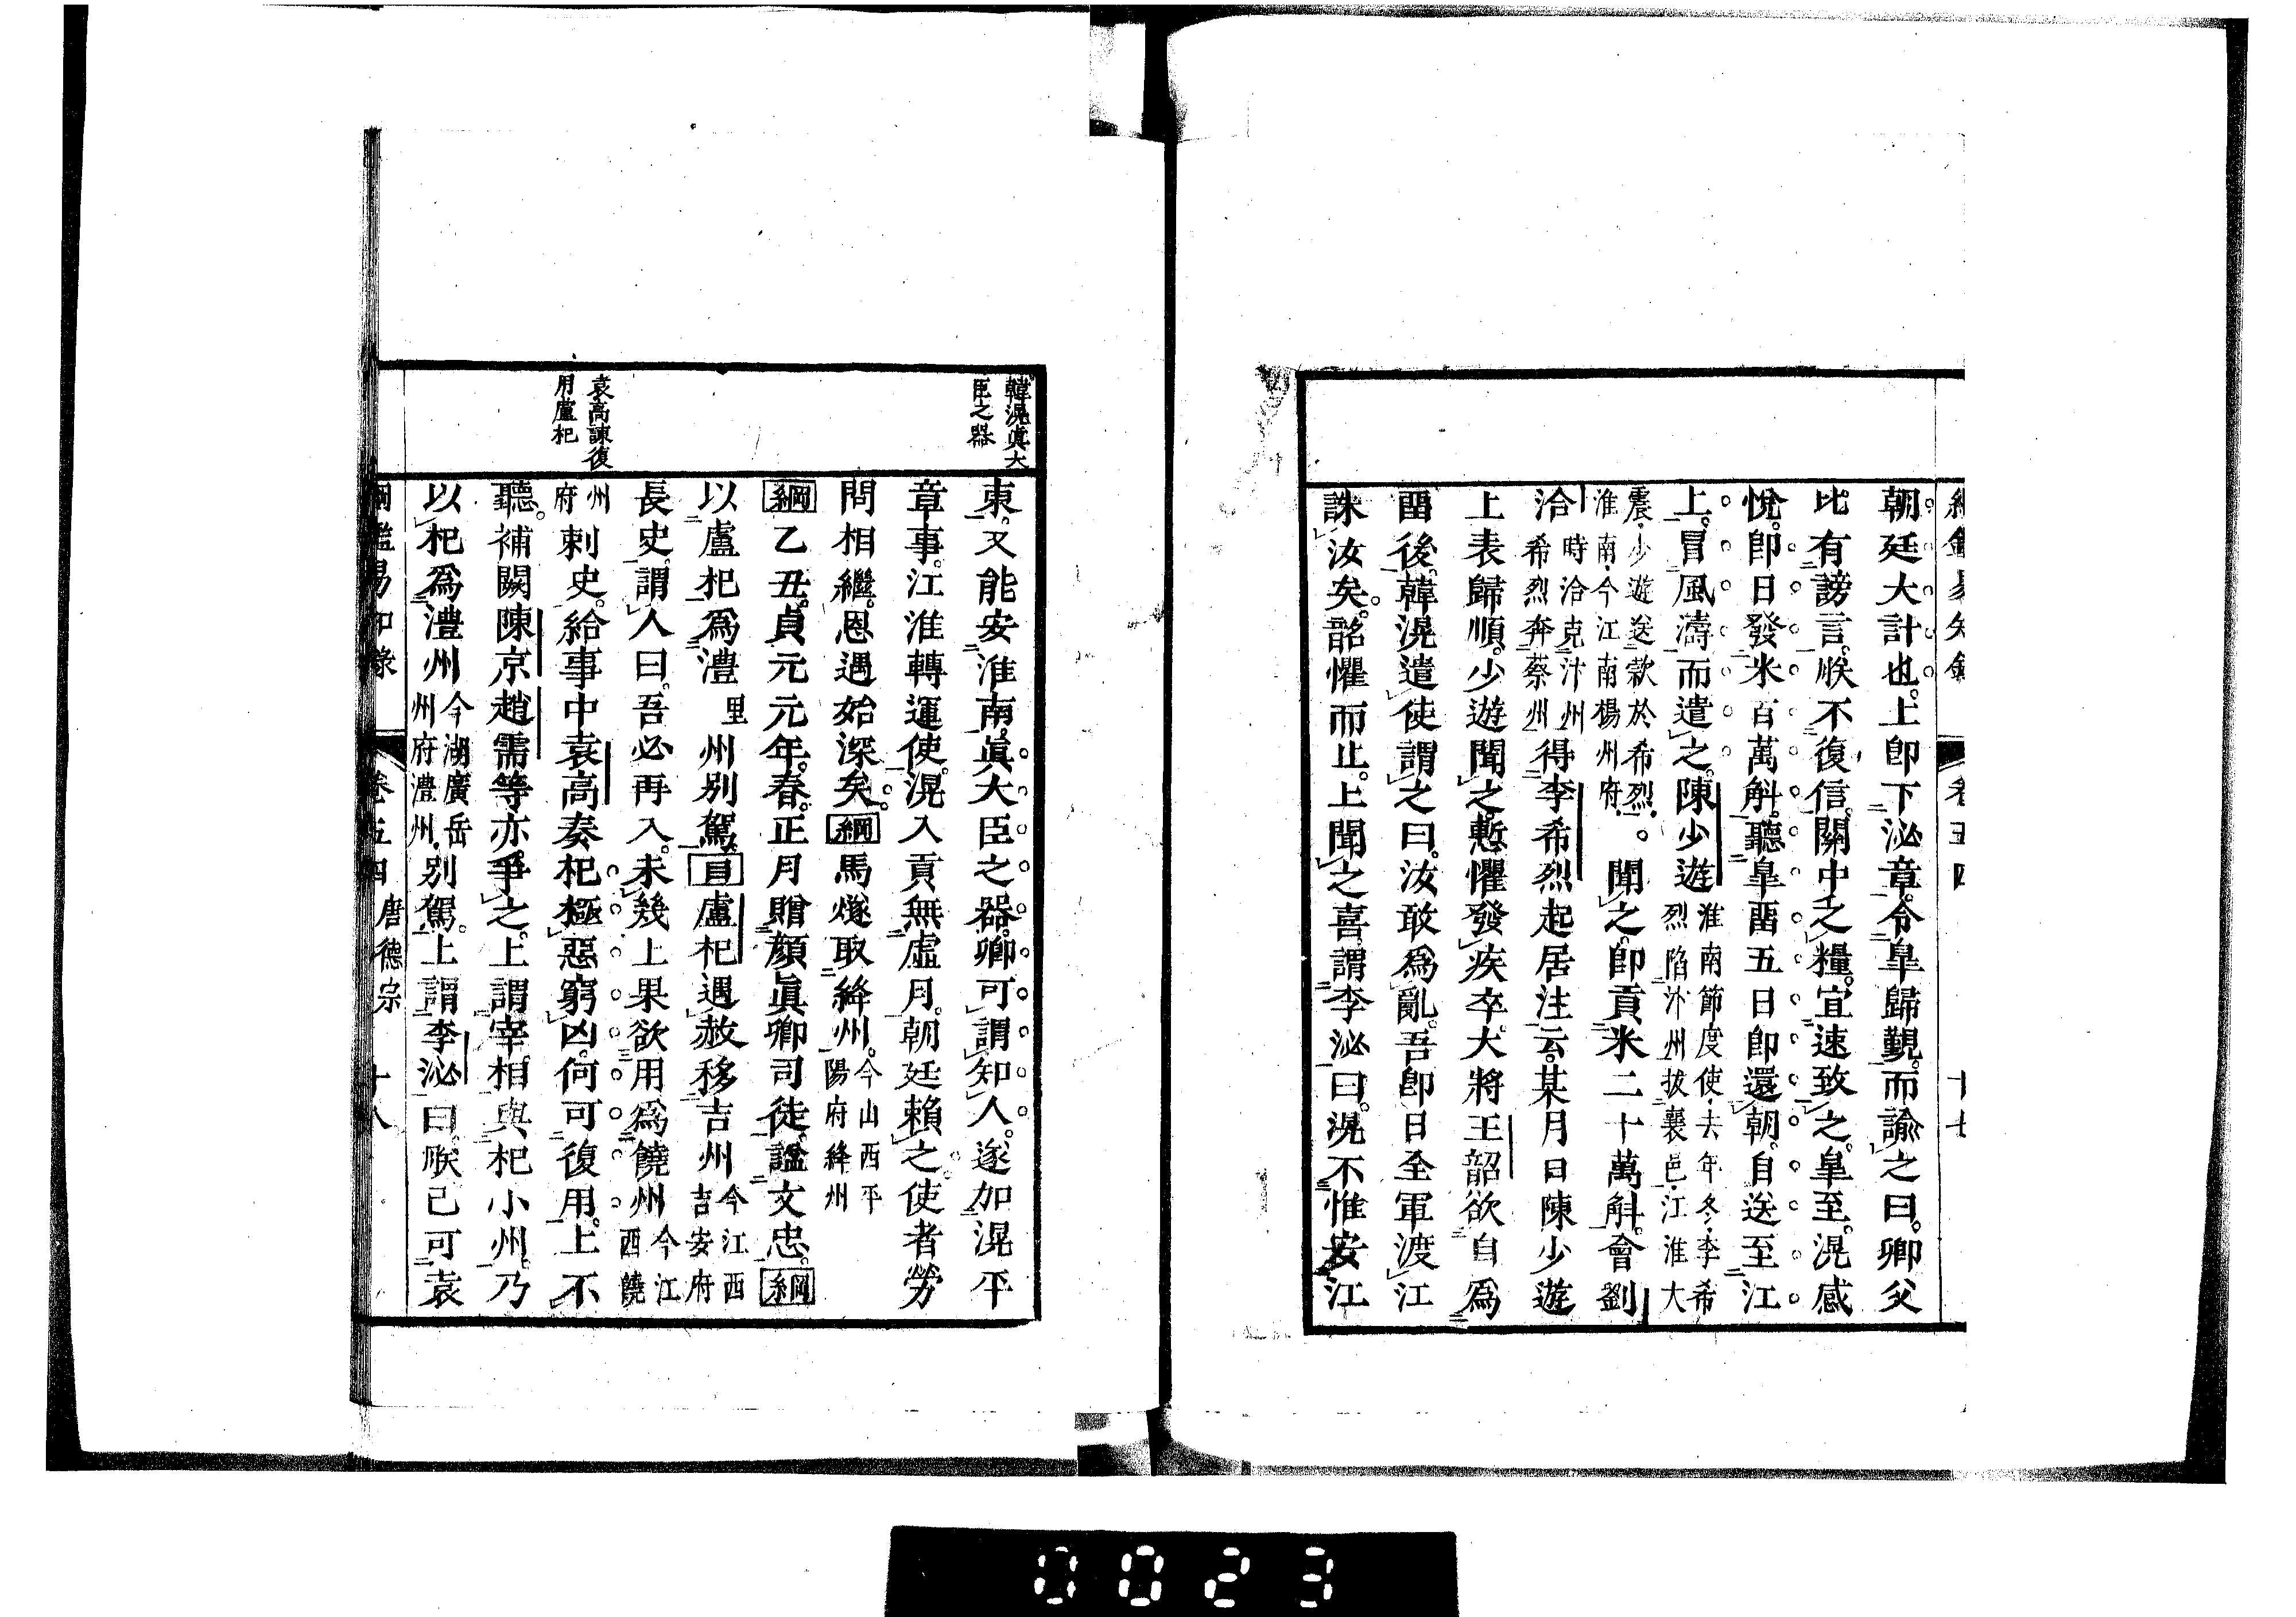 綱鑑易知錄　卷五四　十七
朝廷大計也。上卽下泌章。令皐歸覲。而諭之曰。卿父
比有謗言。朕不復信。關中乏糧。宜速致之。皐至。滉感
悅。卽日發米百萬斛。聽皐畱五日卽還朝。自送至江
上。冒風濤而遣之。陳少遊淮南節度使、去年冬、李希烈陷汴州拔襄邑、江淮大
震、少遊送款於希烈、淮南、今江南楊州府、。聞之。卽貢米二十萬斛。會劉
洽時洽克汴州希烈奔蔡州得李希烈起居注云。某月日陳少遊
上表歸順。少遊聞之。慙懼發疾卒。大將王韶欲自爲
畱後。韓滉遣使謂之曰。汝敢爲亂。吾卽日全軍渡江
誅汝矣。韶懼而止。上聞之喜。謂李泌曰。滉不惟安江
韓滉眞大
臣之器
東。又能安淮南。眞大臣之器。卿可謂知人。遂加滉平
章事。江淮轉運使。滉入貢無虛月。朝廷賴之。使者勞
問相繼。恩遇始深矣。綱馬燧取絳州。今山西平陽府絳州
綱乙丑。貞元元年。春。正月贈顏眞卿司徒。諡文忠。綱
以盧杞爲澧里州別駕。目盧杞遇赦移吉州今江西吉安府
長史。謂人曰。吾必再入。未幾上果欲用爲饒州今江西饒
州府刺史。給事中袁高奏杞極惡窮凶。何可復用。上不
聽。補闕陳京趙需等亦爭之。上謂宰相與杞小州。乃
以杞爲澧州今湖廣岳州府澧州、別駕。上謂李泌曰。朕已可袁
袁高諫復
用盧杞
綱鑑易知錄　卷五四　唐德宗　十八
0023